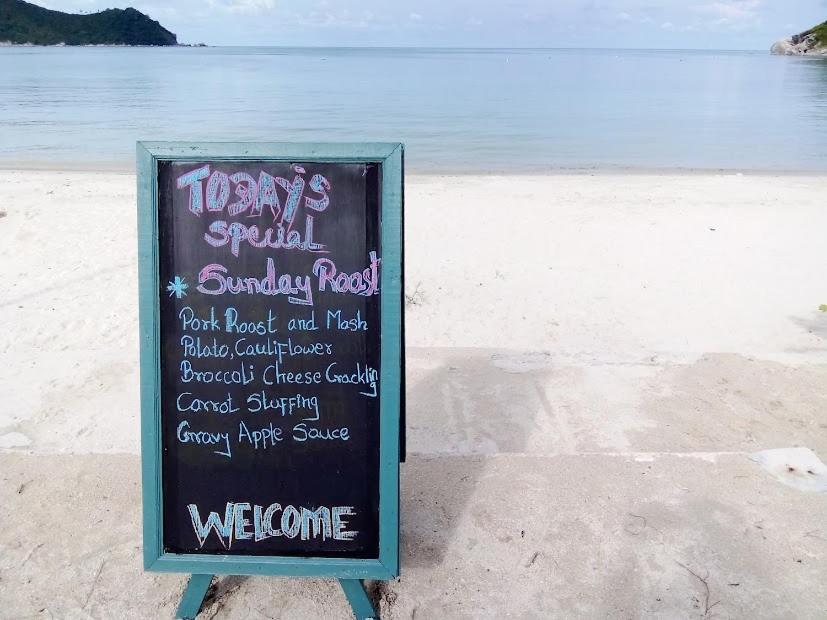 TODAY'S
Special
* Sunday Roast
Pork Roost and Mash
Polato, Cauliflower
Broccoli Cheese Crackling
Carrot Stuffing
Gravy Apple Sauce
WELCOME